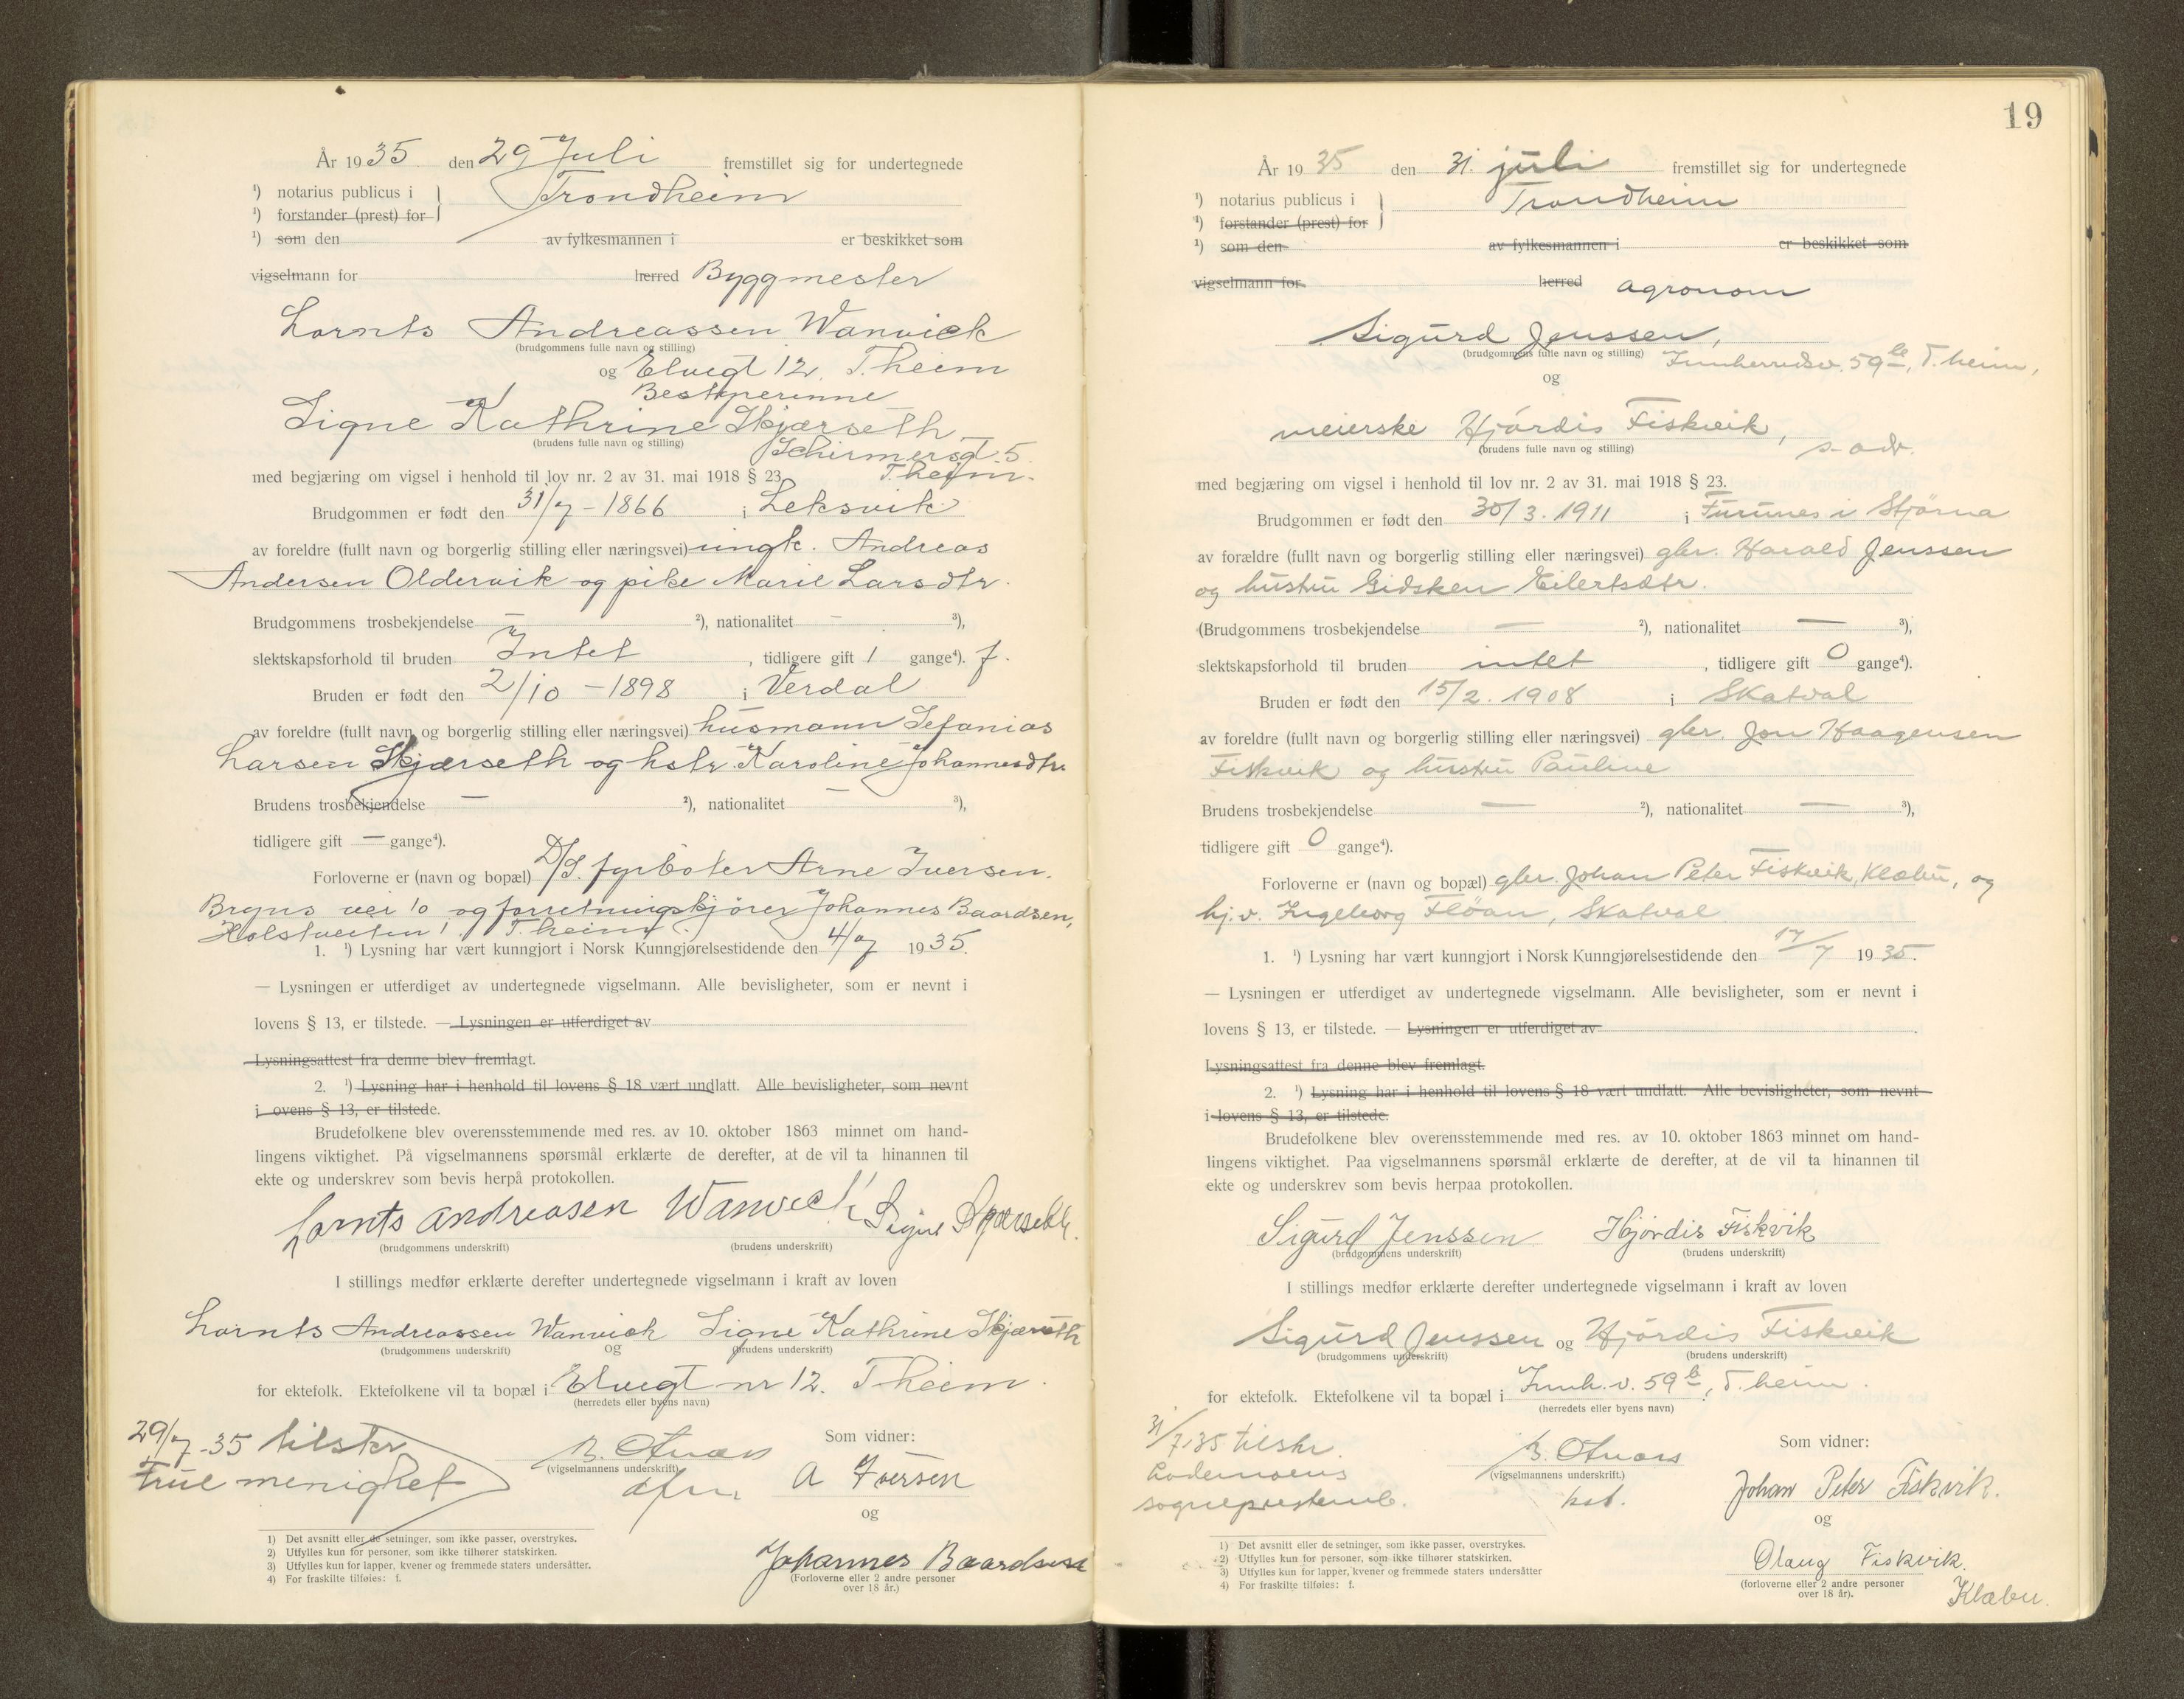 År 1935 den 29 Juli fremstillet sig for undertegnede
¹) notarius publicus i Trondheim
¹) forstander (prest) for
¹) som den av fylkesmannen i er beskikket som
vigselmann for herred Byggmester
Lornts Andreassen Wanvick
(brudgommens fulle navn og stilling)
og Elvegt 12. T.heim
Bestyrerinne
Signe Kathrine Skjærseth
(brudens fulle navn og stilling)
Schirmersgt 5
T.heim.
med begjæring om vigsel i henhold til lov nr. 2 av 31. mai 1918 § 23
Brudgommen er født den 31/7 - 1866 i Leksvik
av foreldre (fullt navn og borgerlig stilling eller næringsvei) ungk. Andreas
Andersen Oldervik og pike Marie Larsdtr.
Brudgommens trosbekjendelse — ²), nationalitet — ³),
slektskapsforhold til bruden Intet, tidligere gift 1 gange⁴). f.
Bruden er født den 2/10 - 1898 i Verdal
av foreldre (fullt navn og borgerlig stilling eller næringsvei) husmann Sefanias
Larsen Skjærseth og hstr. Karoline Johannesdtr.
Brudens trosbekjendelse — ²), nationalitet — ³),
tidligere gift — gange⁴).
Forloverne er (navn og bopæl) D/S. fyrbøter Arne Iversen.
Bryns vei 10 og forretningskjører Johannes Baardsen,
Holstveiten 1. T.heim.
1. ¹) Lysning har vært kunngjort i Norsk Kunngjørelsestidende den 4/7 1935.
— Lysningen er utferdiget av undertegnede vigselmann. Alle bevisligheter, som er nevnt i
lovens § 13, er tilstede. — Lysningen er utferdiget av
Lysningsattest fra denne blev fremlagt.
2. ¹) Lysning har i henhold til lovens § 18 vært undlatt. Alle bevisligheter, som nevnt
i ovens § 13, er tilstede.
Brudefolkene blev overensstemmende med res. av 10. oktober 1863 minnet om hand-
lingens viktighet. På vigselmannens spørsmål erklærte de derefter, at de vil ta hinannen til
ekte og underskrev som bevis herpå protokollen.
Lornts Andreasen Wanvick Signe Skjærseth.
(brudgommens underskrift) (brudens underskrift)
I stillings medfør erklærte derefter undertegnede vigselmann i kraft av loven
Lornts Andreassen Wanvick Signe Kathrine Skjærseth
(brudgommens underskrift) og (brudens underskrift)
for ektefolk. Ektefolkene vil ta bopæl i Elvegt nr 12. T.heim.
(herredets eller byens navn)
29/7-35 tilskr
Frue menighet
(vigselmannens underskrift)
Som vidner:
A Iversen
og
Johannes Baardsen
(Forloverne eller 2 andre personer
over 18 år.)
1) Det avsnitt eller de setninger, som ikke passer, overstrykes.
2) Utfylles kun for personer, som ikke tilhører statskirken.
3) Utfylles kun for lapper, kvener og fremmede staters undersåtter.
4) For fraskilte tilføies: f.
19
År 1935 den 31. juli fremstillet sig for undertegnede
¹) notarius publicus i Trondheim
¹) forstander (prest) for
¹) som den av fylkesmannen i er beskikket som
vigselmann for herred agronom
Sigurd Jenssen,
(brudgommens fulle navn og stilling) Innherredsv. 59b, T.heim,
og
meierske Hjördis Fiskvik,
(brudens fulle navn og stilling) s. adr.
med begjæring om vigsel i henhold til lov nr. 2 av 31. mai 1918 § 23.
Brudgommen er født den 30/3. 1911 i Furunes i Stjörna
av forældre (fullt navn og borgerlig stilling eller næringsvei) gbr. Harald Jenssen
og hustru Gidsken Eilertsdtr.
(Brudgommens trosbekjendelse — ²), nationalitet — ³),
slektskapsforhold til bruden intet, tidligere gift 0 gange⁴).
Bruden er født den 15/2. 1908 i Skatval
av foreldre (fullt navn og borgerlig stilling eller næringsvei) gbr. Jon Haagensen
Fiskvik og hustru Pauline
Brudens trosbekjendelse — ²), nationalitet — ³),
tidligere gift 0 gange⁴).
Forloverne er (navn og bopæl) gbr. Johan Peter Fiskvik, Klæbu, og
hj.v. Ingeborg Flöan, Skatval
1. ¹) Lysning har vært kunngjort i Norsk Kunngjørelsestidende den 17/7 1935.
— Lysningen er utferdiget av undertegnede vigselmann. Alle bevisligheter, som er nevnt i
lovens § 13, er tilstede. — Lysningen er utferdiget av .
Lysningsattest fra denne blev fremlagt.
2. ¹) Lysning har i henhold til lovens § 18 vært undlatt. Alle bevisligheter, som nevnt
i lovens § 13, er tilstede.
Brudefolkene blev overensstemmende med res. av 10. oktober 1863 minnet om hand-
lingens viktighet. Paa vigselmannens spørsmål erklærte de derefter, at de vil ta hinannen til
ekte og underskrev som bevis herpaa protokollen.
Sigurd Jenssen Hjördis Fiskvik
(brudgommens underskrift) (brudens underskrift)
I stillings medfør erklærte derefter undertegnede vigselmann i kraft av loven
Sigurd Jenssen og Hjördis Fiskvik
(brudgommens underskrift) (brudens underskrift)
for ektefolk. Ektefolkene vil ta bopæl i Innh.v. 59b, T.heim.
(herredets eller byens navn)
31/7.35 tilskr.
Lademoens
sogneprestemb.
(vigselmannens underskrift.)
kst.
Som vidner:
Johan Peter Fiskvik.
og
Olaug Fiskvik.
(forloverne eller 2 andre personer
over 18 år).
Klæbu.
1) Det avsnitt eller de setninger, som ikke passer, overstrykes.
2) Utfylles kun for personer, som ikke tilhører statskirken.
3) Utfylles kun for lapper, kvener og fremmede staters undersåtter
4) For fraskilte tilføies: f.